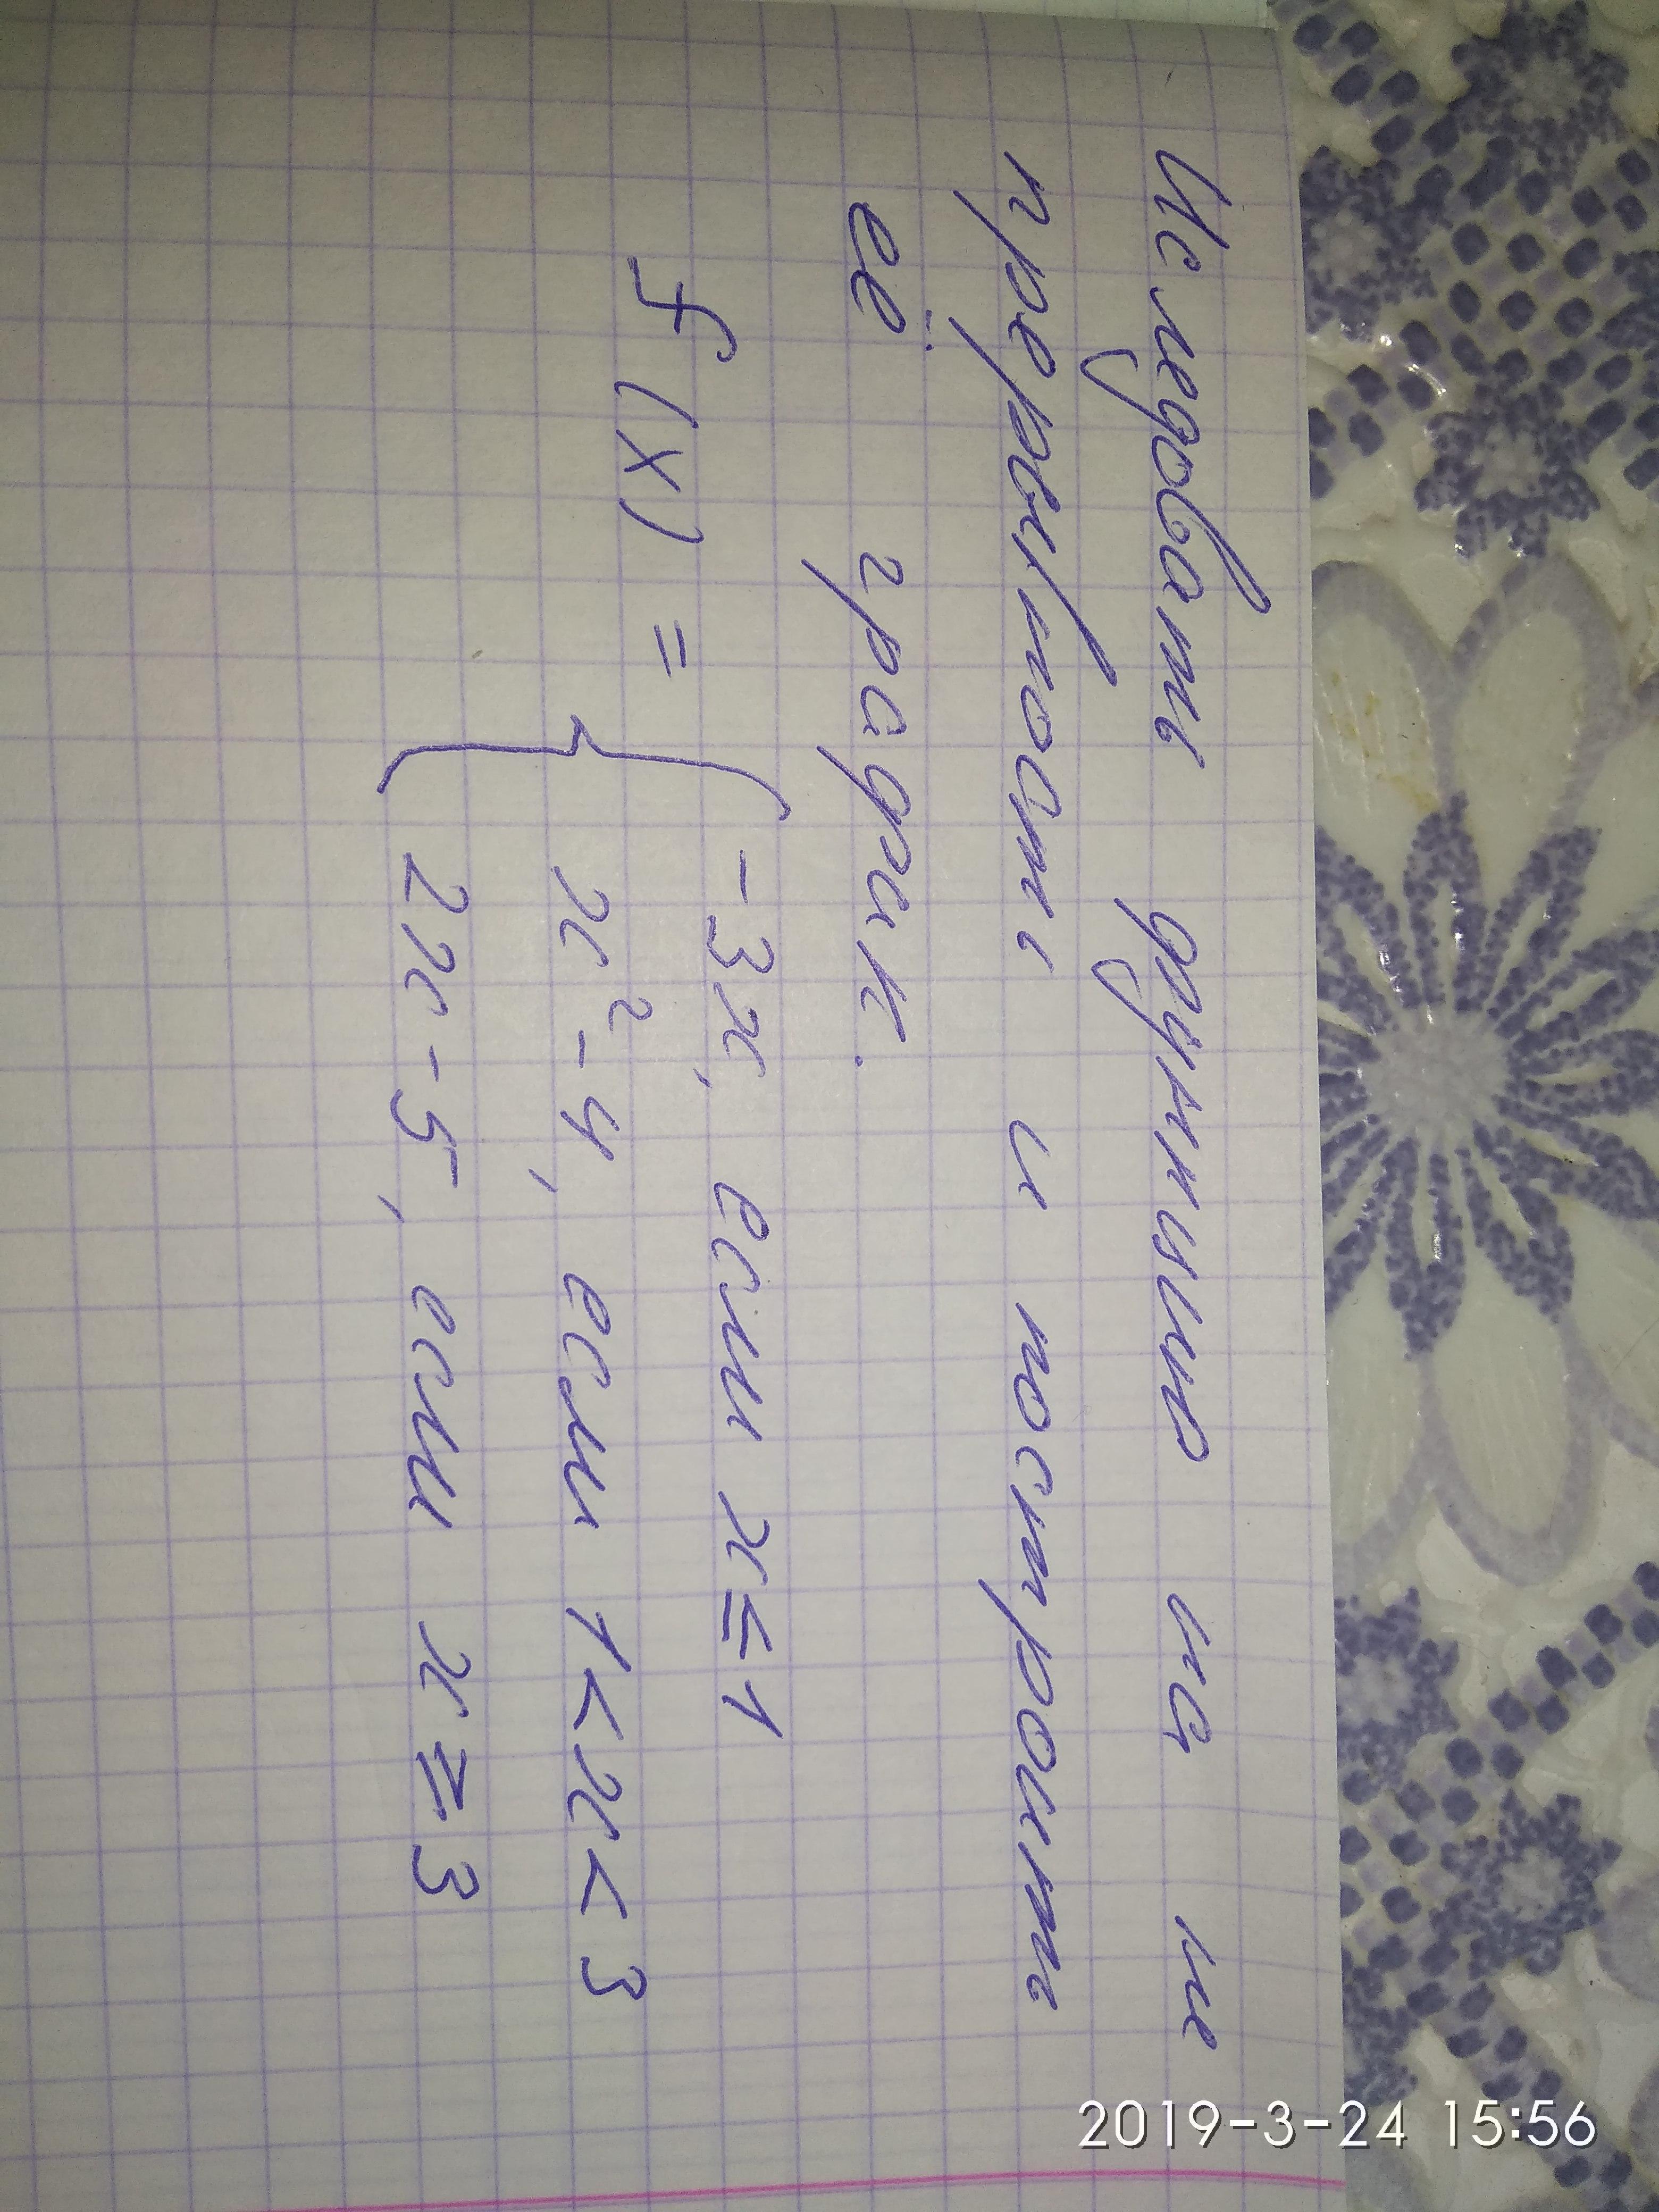 Исследовать функцию на не
прерывность и построить
её график.
f(x) = { -3x, если x ≤ 1
x² - 4, если 1 < x < 3
2x - 5, если x ≥ 3
2019-3-24 15:56